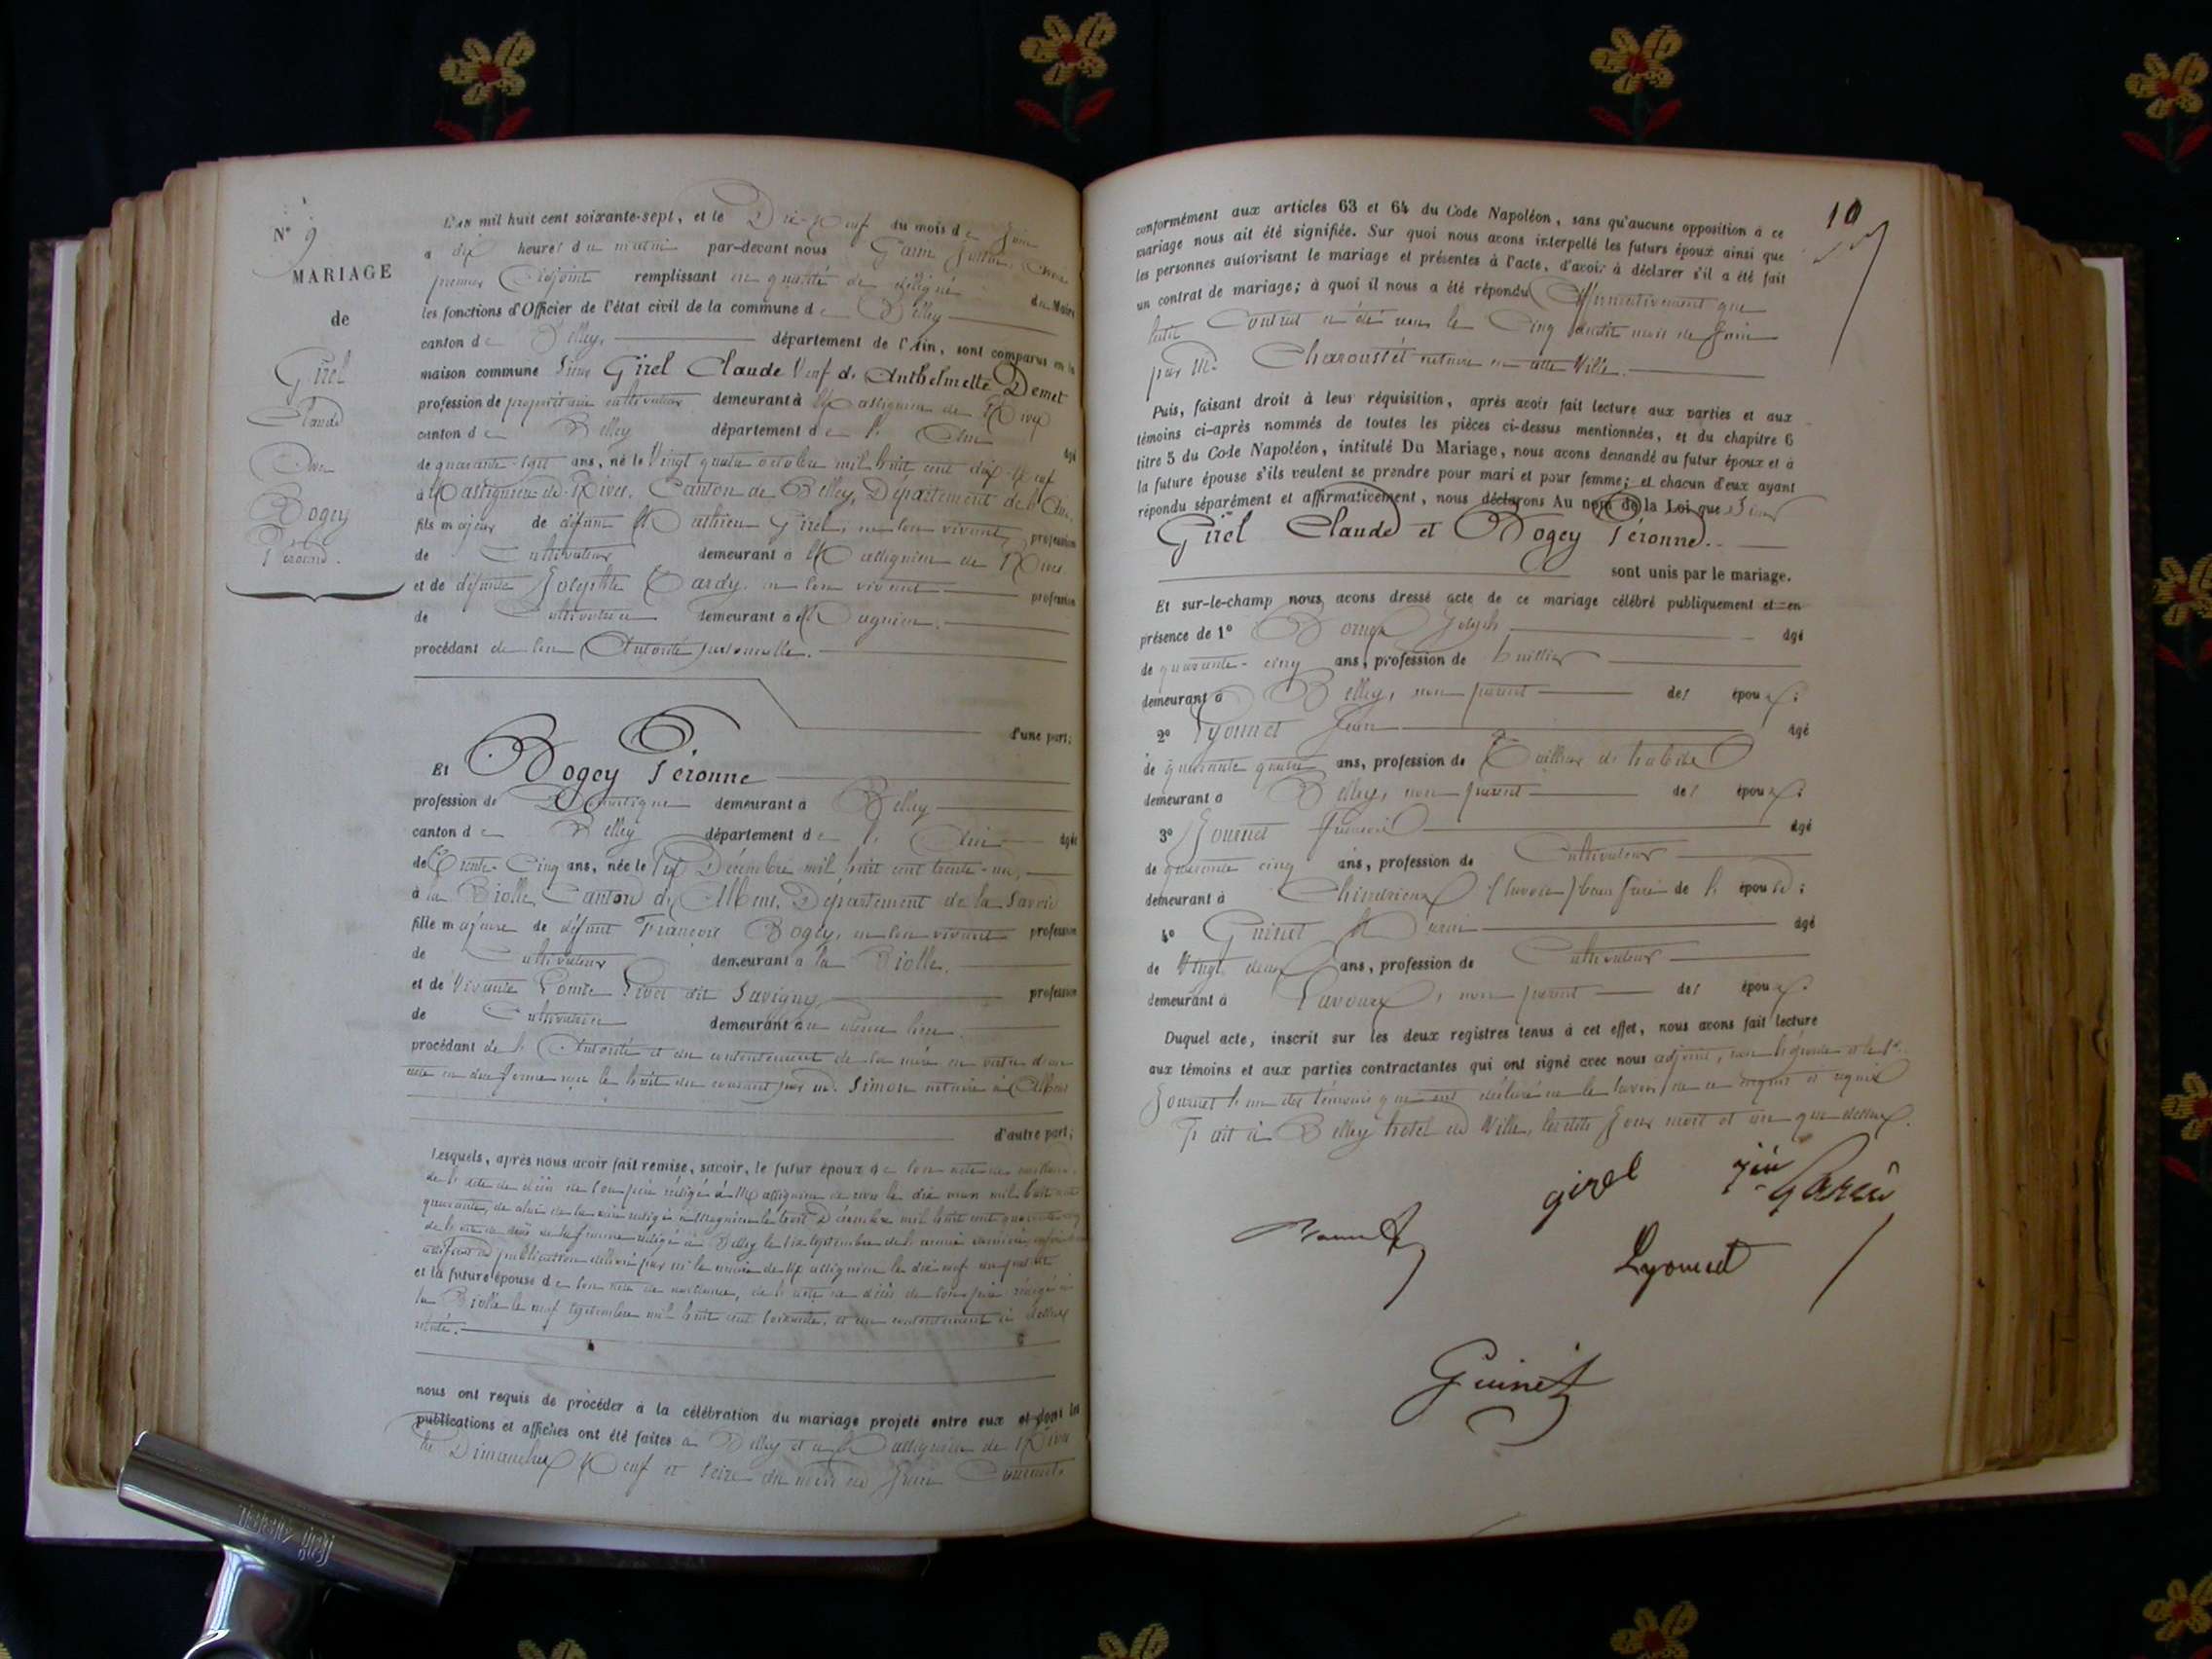 N° 9
MARIAGE
de
Girel
Claude
Avec
Bogey
Péronne.
L'AN mil huit cent soixante-sept, et le Dix-Neuf du mois de Juin
a dix heures du matin par-devant nous Garin
premier Adjoint remplissant en qualité de délégué du Maire
les fonctions d'Officier de l'état civil de la commune de Belley
canton de Belley, département de l'Ain, sont comparus en la
maison commune Sieur Girel Claude Veuf de Anthelmette Demet
profession de propriétaire cultivateur demeurant à Massignieu de Rives
canton de Belley département de l'Ain âgé
de quarante-sept ans, né le Vingt quatre octobre mil huit cent dix-neuf
à Massignieu-de-Rives, Canton de Belley, Département de l'Ain,
fils majeur de défunt Mathieu Girel, en son vivant profession
de Cultivateur demeurant à Massignieu de Rives
et de défunte Josephte Tardy, en son vivant profession
de Cultivatrice demeurant à Magnieu.
procédant de son Autorité personnelle.
d'une part;
Et Bogey Péronne
profession de Domestique demeurant à Belley
canton de Belley département de l'Ain âgée
de Trente-Cinq ans, née le Six Décembre mil huit cent trente-un,
à la Biolle, Canton d'Albens, Département de la Savoie
fille majeure de défunt François Bogey, en son vivant profession
de Cultivateur demeurant à la Biolle,
et de Vivante Pivet dit Savigny profession
de Cultivatrice demeurant au même lieu.
procédant de l'Autorité et du consentement de sa mère en vertu d'un
acte en due forme reçu le huit du courant par m. Simon notaire à Albens
d'autre part;
Lesquels, après nous avoir fait remise, savoir, le futur époux de son acte de naissance,
de l'acte de décès de son père rédigé à Massignieu de rives le dix mars mil huit cent
quarante, de celui de sa mère rédigé à Magnieu le trois Décembre mil huit cent quarante cinq
de l'acte de décès de sa femme rédigé à Belley le six septembre de l'année dernière,
publication délivré par m. le maire de Massignieu le dix-neuf du présent
et la future épouse de son acte de naissance, de l'acte de décès de son père rédigé à
la Biolle le neuf septembre mil huit cent soixante, et du consentement ci dessus
relaté.
nous ont requis de procéder à la célébration du mariage projeté entre eux et dont les
publications et affiches ont été faites à Belley et à Massignieu de Rives
les Dimanches Neuf et seize du mois de Juin Courant.
10
conformément aux articles 63 et 64 du Code Napoléon, sans qu'aucune opposition à ce
mariage nous ait été signifiée. Sur quoi nous avons interpellé les futurs époux ainsi que
les personnes autorisant le mariage et présentes à l'acte, d'avoir à déclarer s'il a été fait
un contrat de mariage; à quoi il nous a été répondu Affirmativement que
ledit Contrat a été reçu le Cinq dudit mois de Juin
par Me Charoustet notaire en cette Ville.
Puis, faisant droit à leur réquisition, après avoir fait lecture aux parties et aux
témoins ci-après nommés de toutes les pièces ci-dessus mentionnées, et du chapitre 6
titre 5 du Code Napoléon, intitulé Du Mariage, nous avons demandé au futur époux et à
la future épouse s'ils veulent se prendre pour mari et pour femme; et chacun d'eux ayant
répondu séparément et affirmativement, nous déclarons Au nom de la Loi que Sieur
Girel Claude et Bogey Péronne.
sont unis par le mariage.
Et sur-le-champ nous avons dressé acte de ce mariage célébré publiquement et en
présence de 1° Joseph âgé
de quarante-cinq ans, profession de huissier
demeurant à Belley, non parent des époux;
2° Lyonnet Jean âgé
de quarante quatre ans, profession de Tailleur de habits
demeurant à Belley, non parent des époux;
3° François âgé
de quarante cinq ans, profession de Cultivateur
demeurant à Chindrieux (Savoie) beau frère de l'épouse;
4° Guinet Marin âgé
de Vingt deux ans, profession de Cultivateur
demeurant à Lavours, non parent des époux.
Duquel acte, inscrit sur les deux registres tenus à cet effet, nous avons fait lecture
aux témoins et aux parties contractantes qui ont signé avec nous adjoint, non l'épouse et le Sr.
l'un des témoins qui ont déclaré ne le savoir de ce enquis et requis
Fait à Belley hotel de Ville, lesdits Jour mois et an que dessus.
girel
Garin
Lyonnet
Guinet